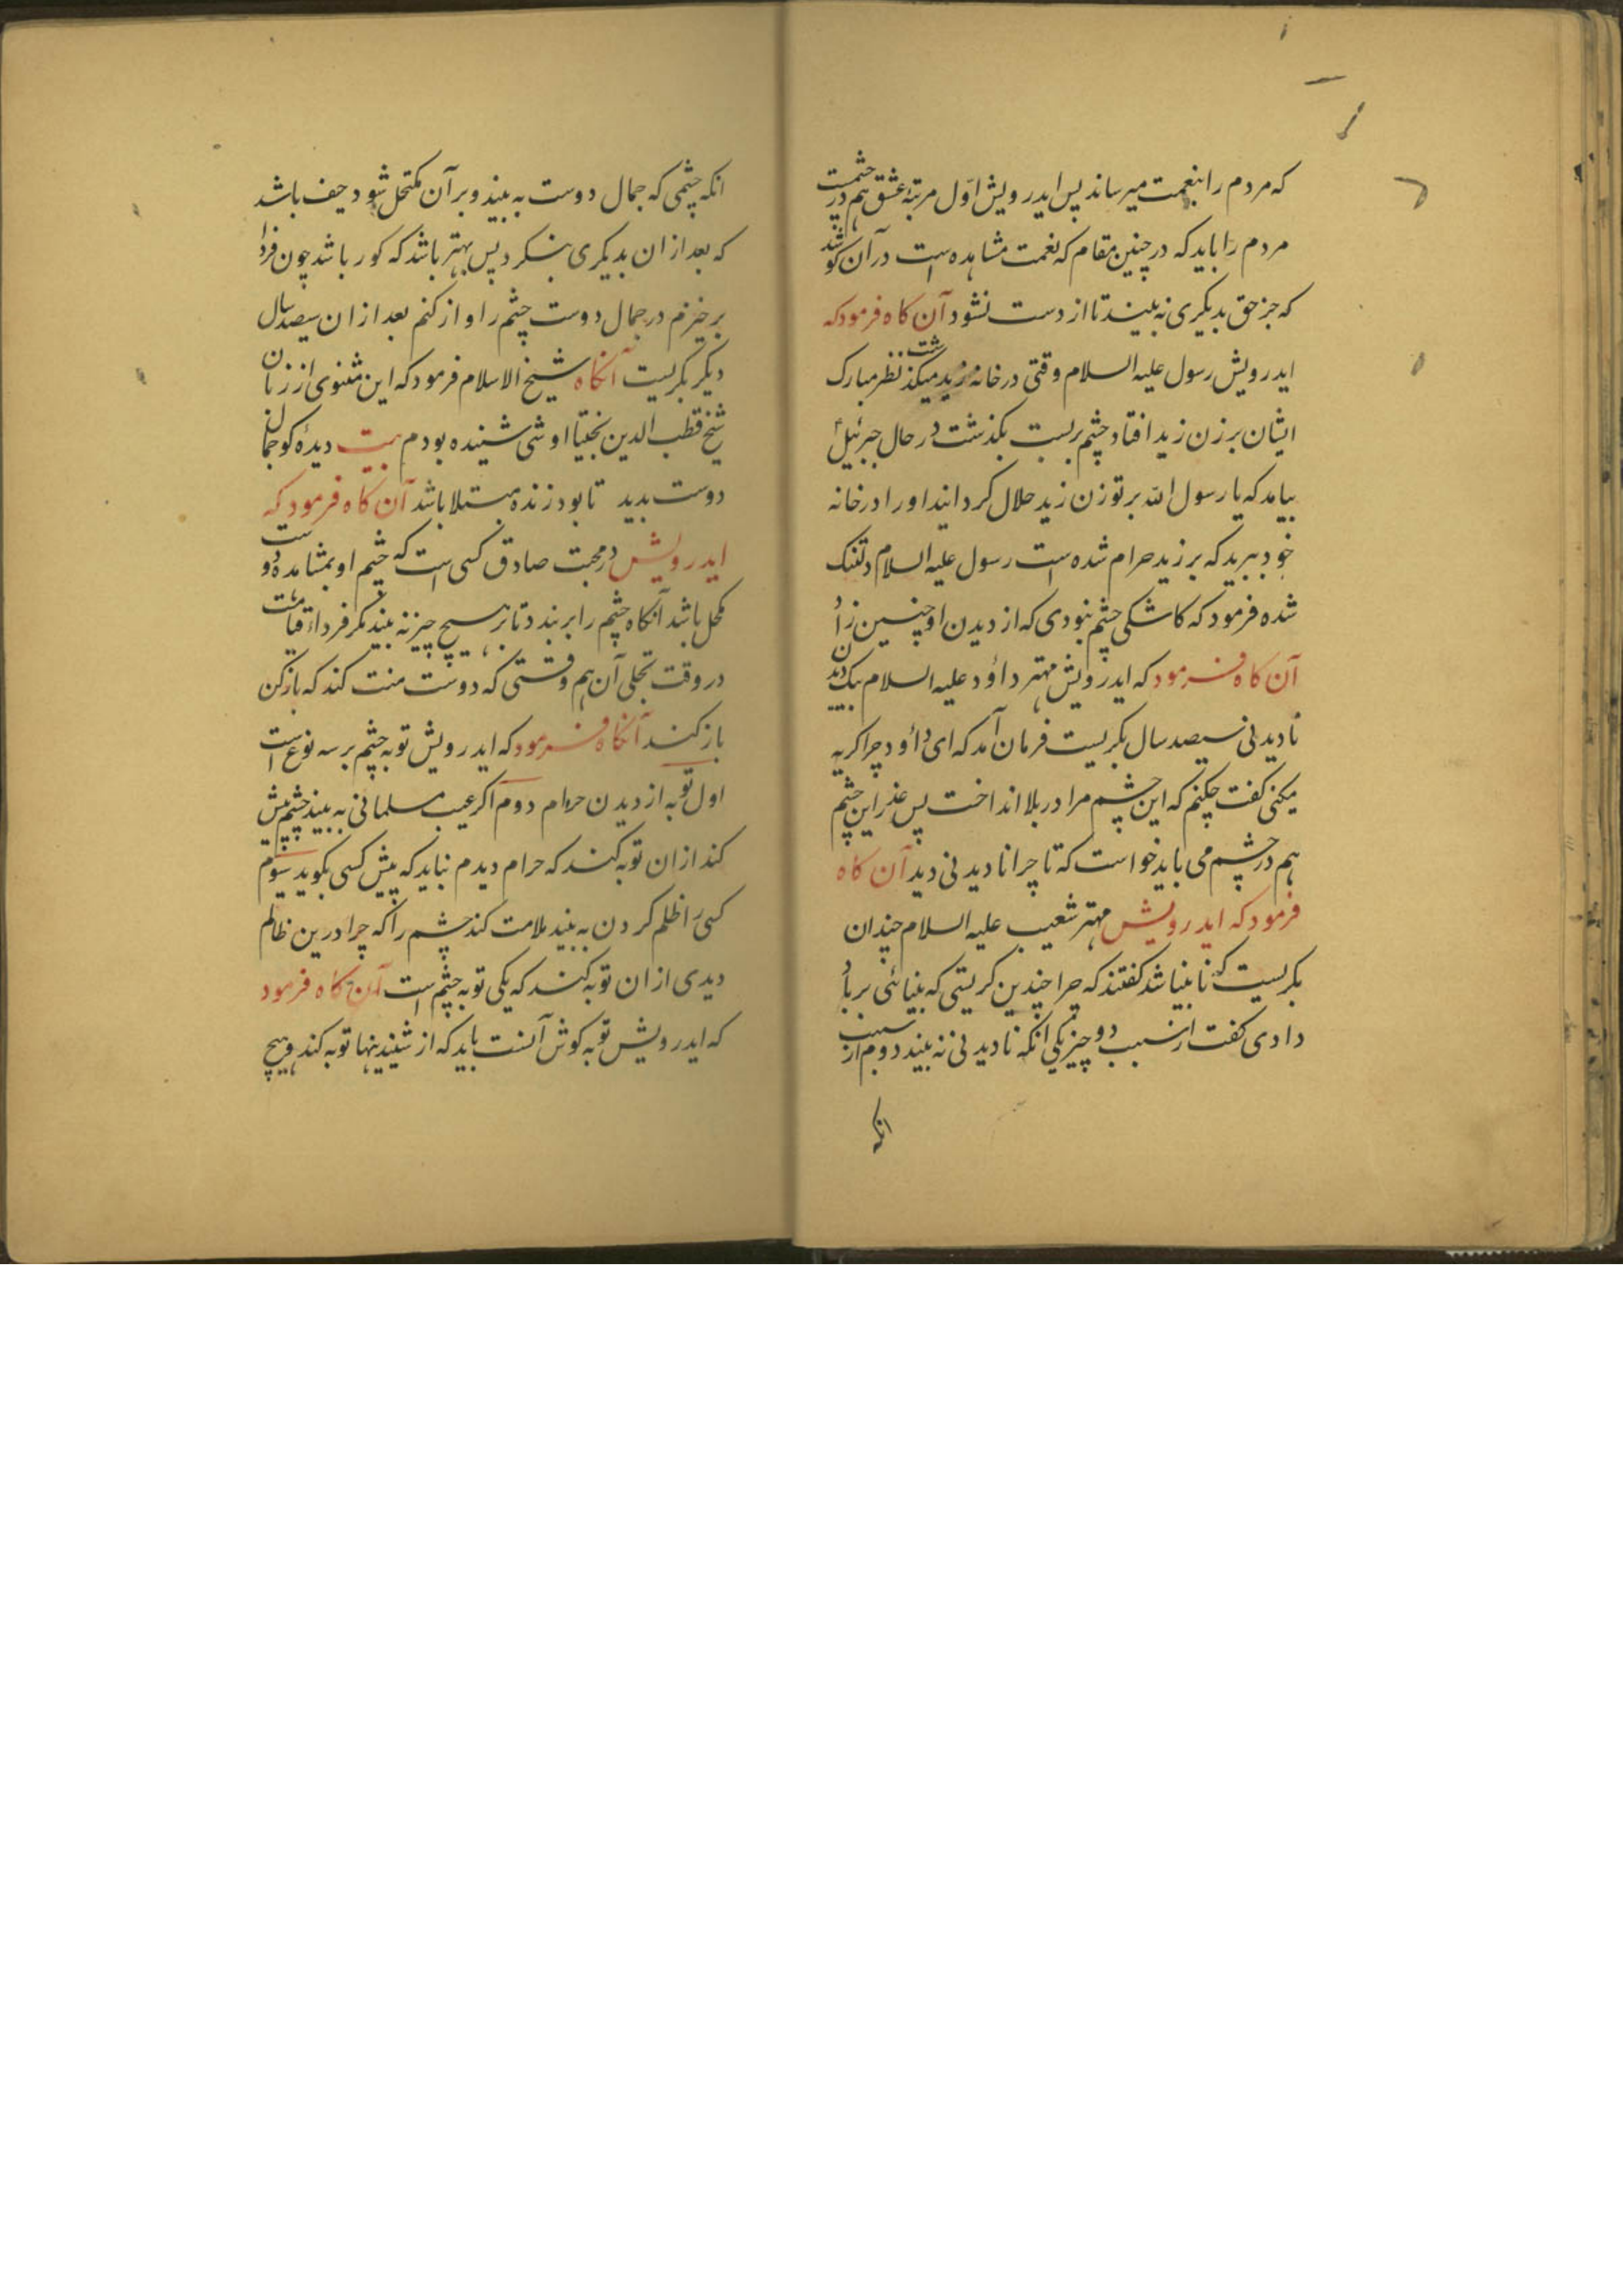 که مردم را بنعمت میرساند پس ایدرویش اوّل مرتبهٔ عشق هم در چشمست
مردم را باید که در چنین مقام که نعمت مشاهده است در آن کوشد
که جز حق بدیکری نه بیند تا از دست نشود آن کاه فرمود که
ایدرویش رسول علیه السلام وقتی در خانه زید میکذشت نظر مبارک
ایشان بر زن زید افتاد چشم بربست بکذشت در حال جبرئیل
بیامد که یا رسول الله بر تو زن زید حلال کردانیدا و را در خانه
خود ببرید که بر زید حرام شده است رسول علیه السلام دلتنک
شده فرمود که کاشکی چشم نبودی که از دیدن او چنین
آن کاه فرمود که ایدرویش مهتر داؤد علیه السلام بیک دیدن
نادیدنی سیصد سال بکریست فرمان آمد که ای داؤد چرا کریه
میکنی کفت چکنم که این چشم مرا در بلا انداخت پس عذر این چشم
هم در چشم می باید خواست که تا چرا نادیدنی دید آن کاه
فرمود که ایدرویش مهتر شعیب علیه السلام چندان
بکریست که نابینا شد کفتند که چرا چندین کریستی که بینائی برباد
دادی کفت از سبب دو چیز یکی انکه نادیدنی نه بیند دوم از سبب
انکه
انکه چشمی که جمال دوست به بیند و بر آن مکتحل شود حیف باشد
که بعد از ان بدیکری بنکرد پس بهتر باشد که کور باشد چون فردا
برخیزم در جمال دوست چشم را واز کنم بعد از ان سیصد سال
دیکر بکریست آنکاه شیخ الاسلام فرمود که این مثنوی از زبان
شیخ قطب الدین بختیا اوشی شنیده بودم بیت دیدهٔ کو جمال
دوست بدید تا بود زنده مبتلا باشد آن کاه فرمود که
ایدرویش در محبت صادق کسی است که چشم او بمشاهدهٔ دوست
مکحل باشد آنکاه چشم را بربندد تا بر هیچ چیز نه بیند مکر فرداء قیامت
در وقت تجلی آن هم وقتی که دوست منت کند که باز کن
باز کند آنکاه فرمود که ایدرویش توبه چشم بر سه نوع است
اول توبه از دیدن حرام دوم اکر عیب مسلمانی به بیند چشم پیش
کند از ان توبه کند که حرام دیدم نباید که پیش کسی بکوید سیوم
کسی را ظلم کردن به بیند ملامت کند چشم را که چرا درین ظالم
دیدی از ان توبه کند که یکی توبه چشم است آن کاه فرمود
که ایدرویش توبه کوش آنست باید که از شنیدنیها توبه کند و هیچ